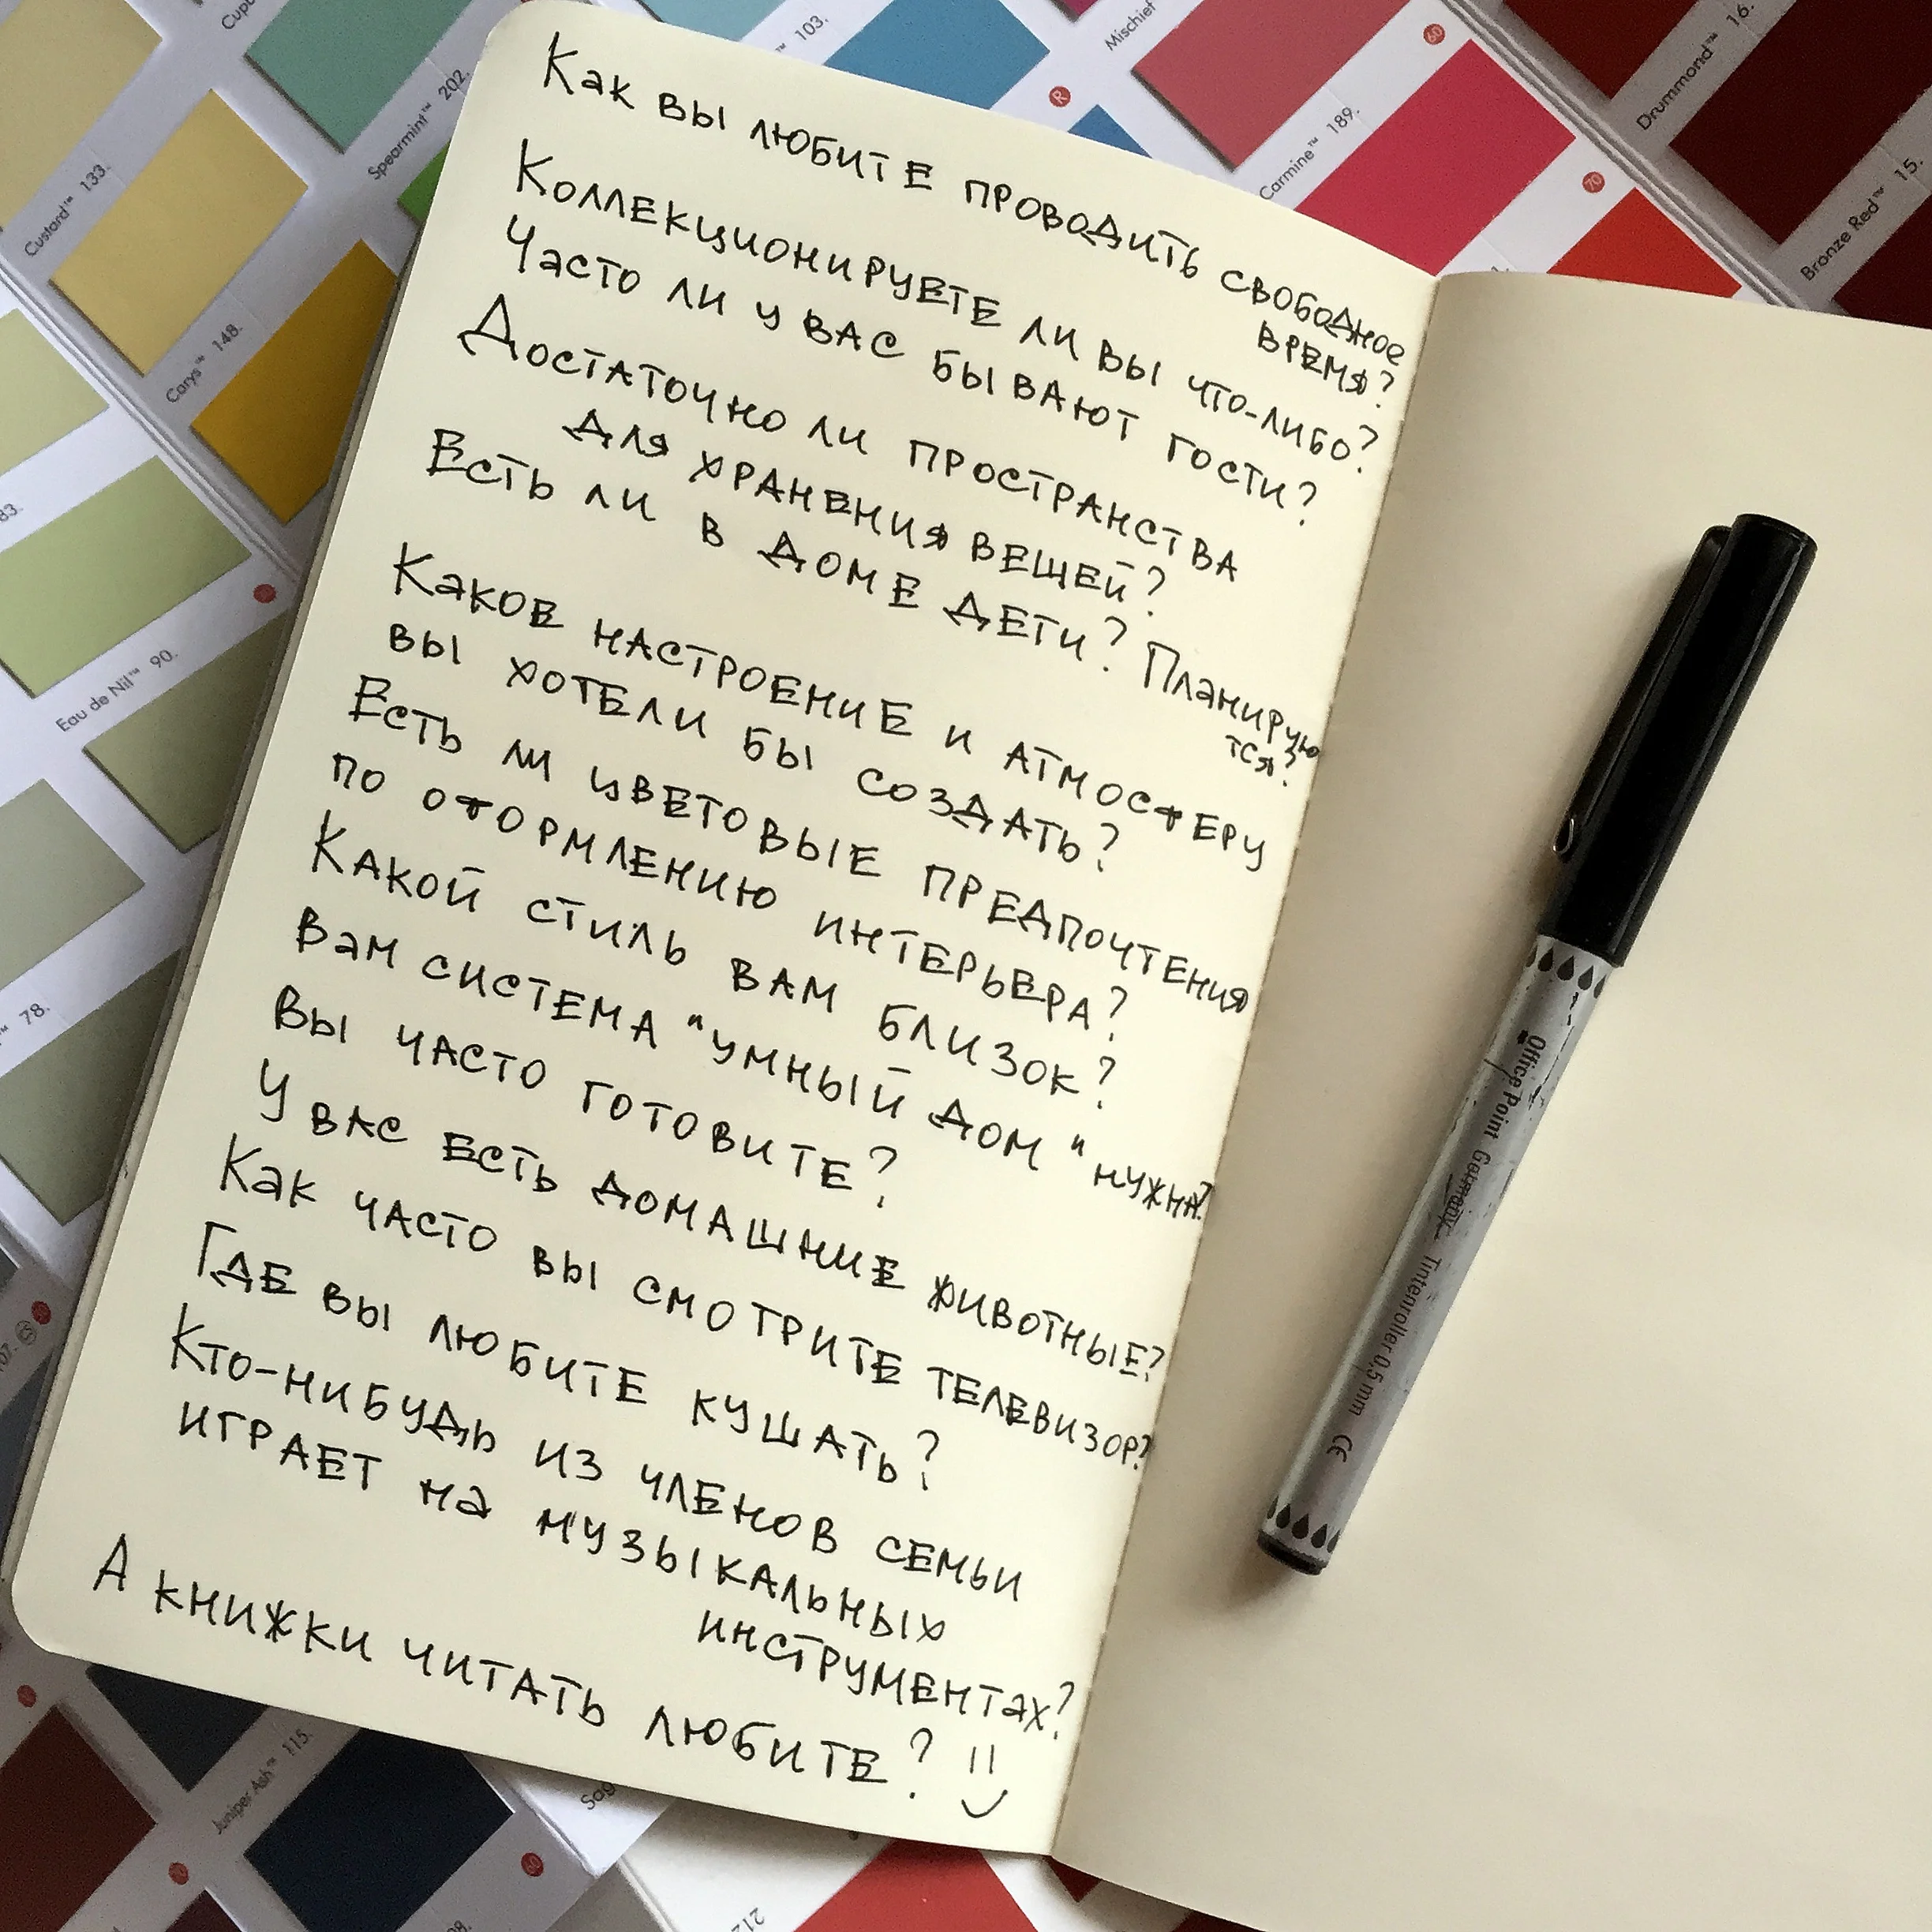 Как вы любите проводить свободное
время?
Коллекционируете ли вы что-либо?
Часто ли у вас бывают гости?
Достаточно ли пространства
для хранения вещей?
Есть ли в доме дети? Планирую
тся?
Каков настроение и атмосферу
вы хотели бы создать?
Есть ли цветовые предпочтения
по оформлению интерьера?
Какой стиль вам близок?
Вам система "умный дом" нужна?
Вы часто готовите?
У вас есть домашние животные?
Как часто вы смотрите телевизор?
Где вы любите кушать?
Кто-нибудь из членов семьи
играет на музыкальных
инструментах?
А книжки читать любите?
Office Point Germany Tintenroller 0,5 mm CE
Custard™ 133.
Spearmint™ 202.
103.
Mischief
Carmine™ 189.
Drummond™ 16.
Bronze Red™ 15.
Carys™ 148.
83.
Eau de Nil™ 90.
78.
107.
Juniper Ash™ 115.
Sag
212
60
70
R